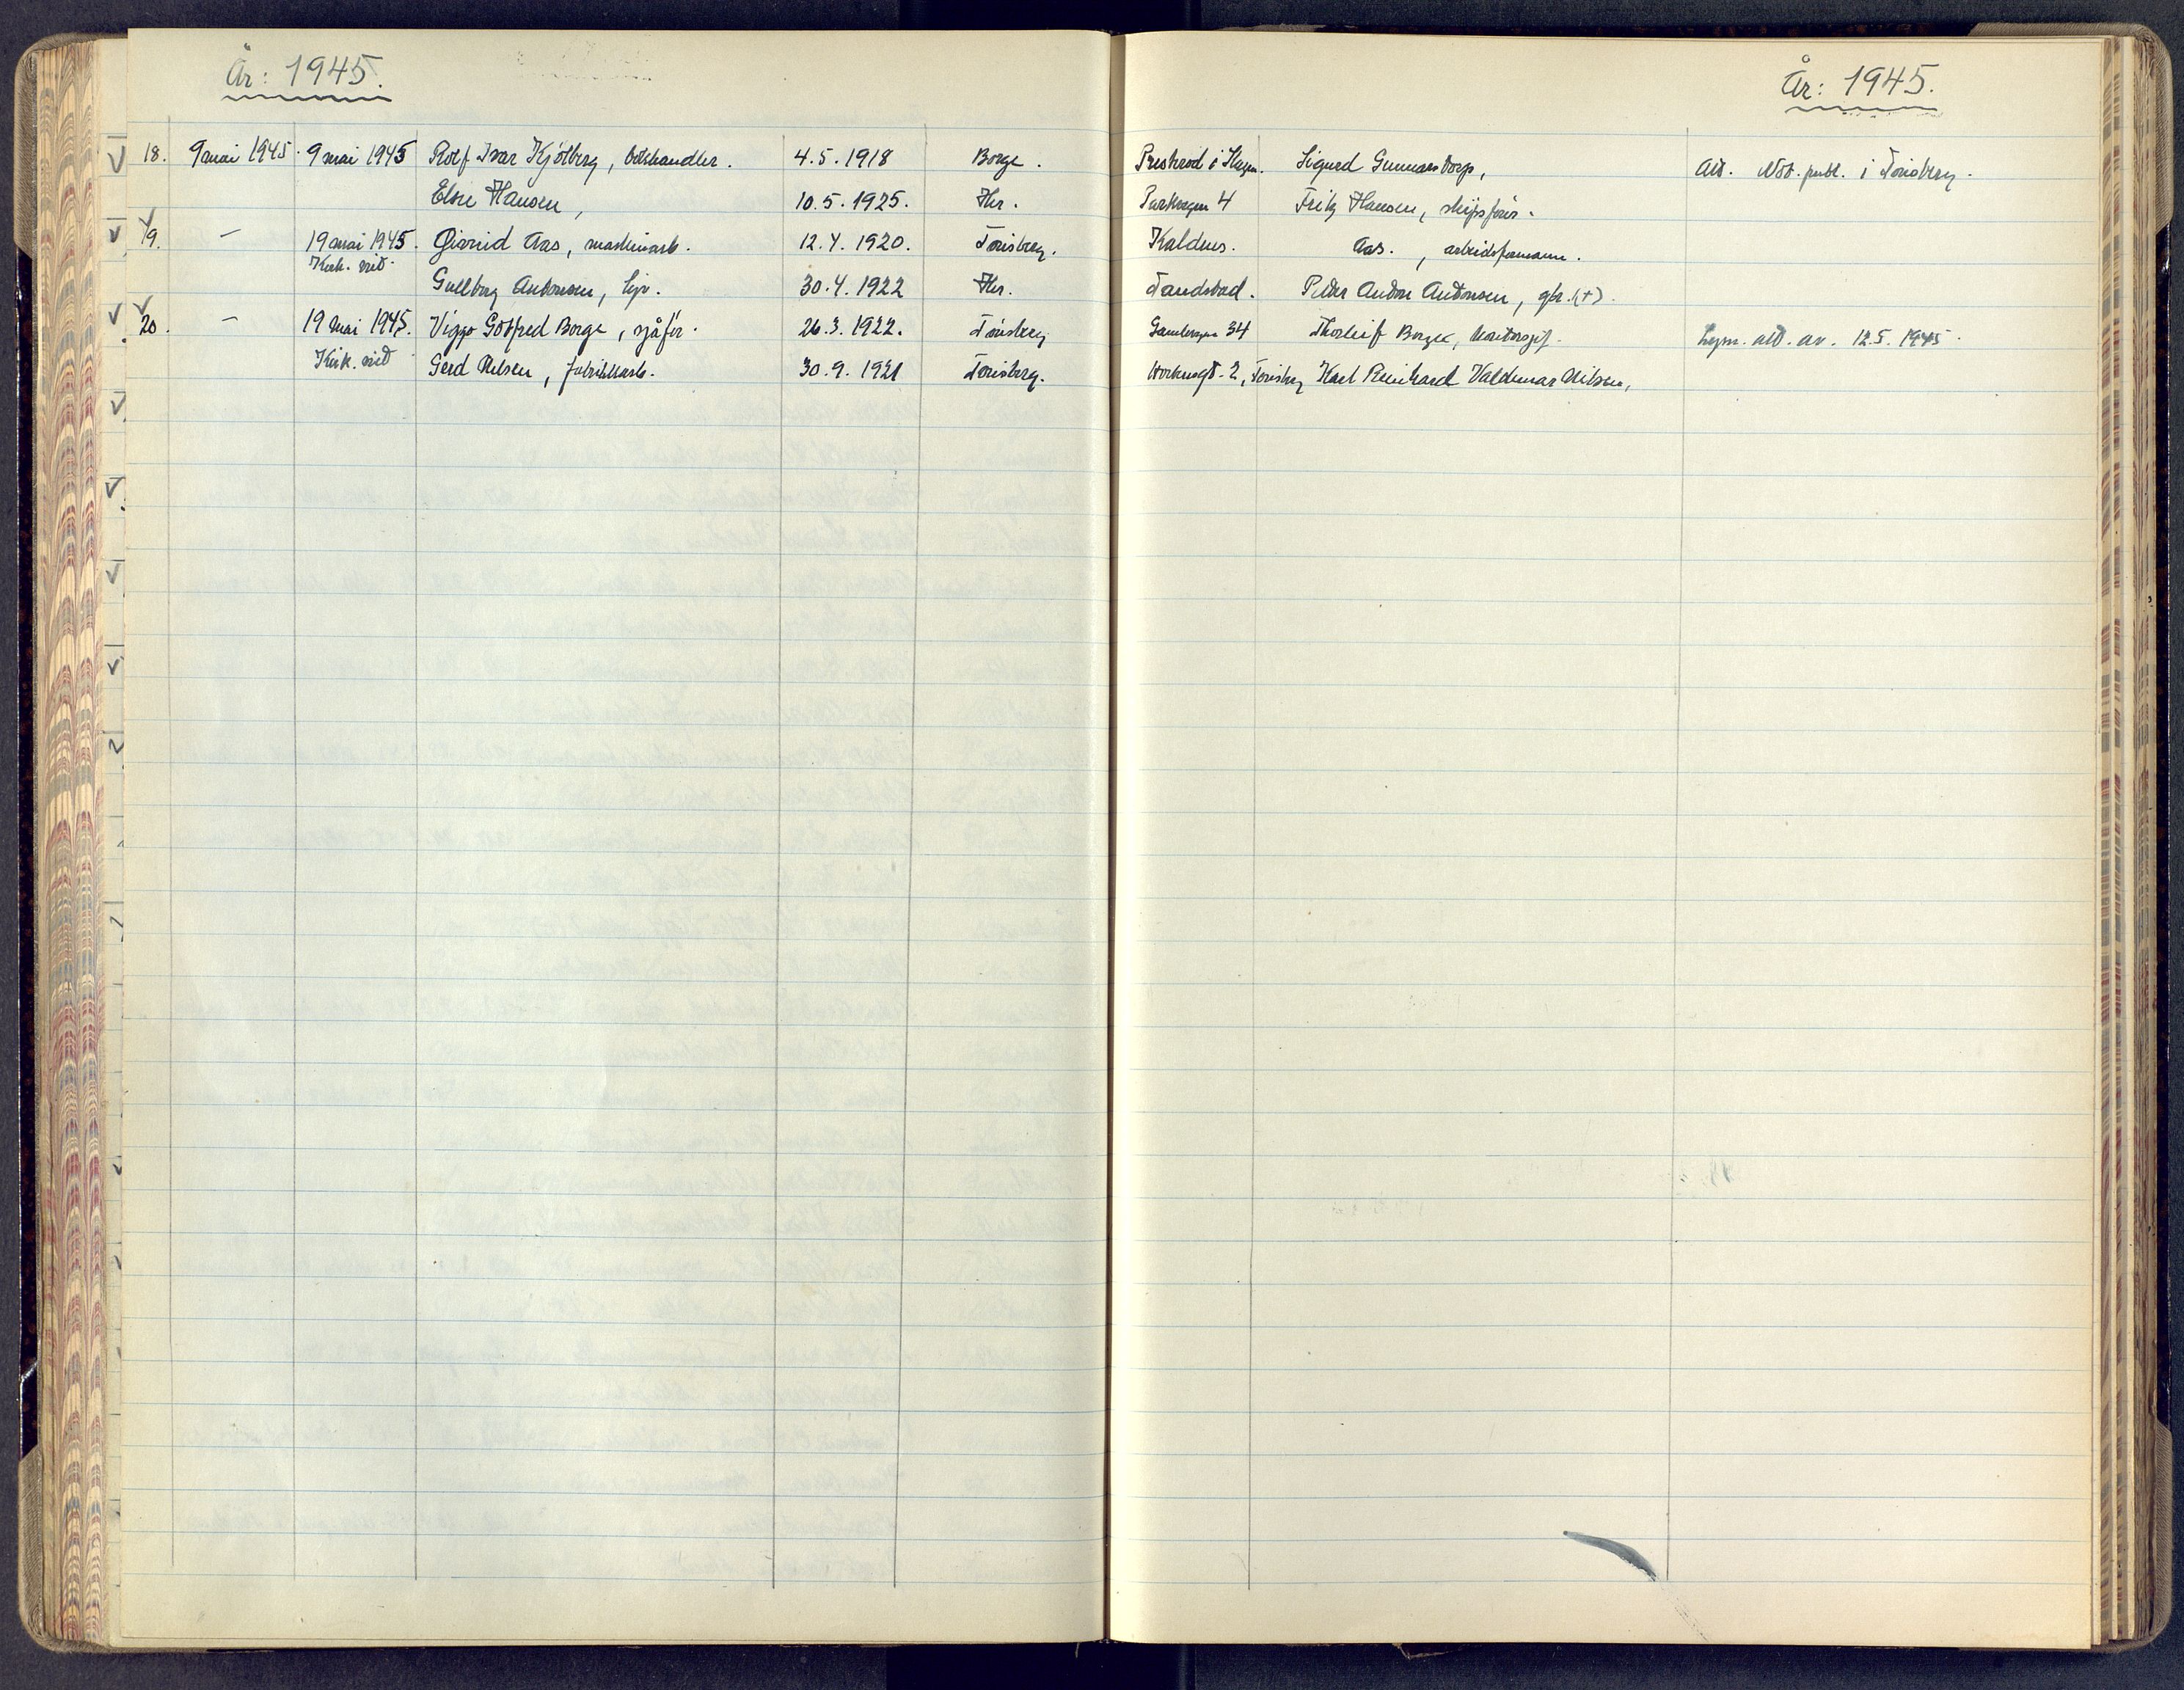 År: 1945.
År: 1945.
18. 9 mai 1945. 9 mai 1945 Rolf Ivar Kjølberg, . 4.5.1918 Borge. Presterød i Slagen. Sigurd Gunnarstorp, Att. Not. publ. i Tønsberg.
Else Hansen, 10.5.1925. Her. Parkvegen 4 Fritz Hansen, skipsfører.
19. — 19 mai 1945. Øivind Aas, maskinarb. 12.4.1920. Tønsberg. Kaldnes. Aas. , arbeidsformann.
Kirk. vid.
Gullborg Antonsen, 30.4.1922 Her. Peder Anton Antonsen, gbr. (+).
20. — 19 mai 1945. Viggo Gotfred Borge, sjåfør. 26.3.1922. Tønsberg 34 Thorleif Borge, Lysn. att. av. 12.5.1945.
Kirk. vid Gerd Nilsen, fabrikkarb. 30.9.1921 Tønsberg. 2, Tønsberg Karl Reinhard Valdemar Nilsen,